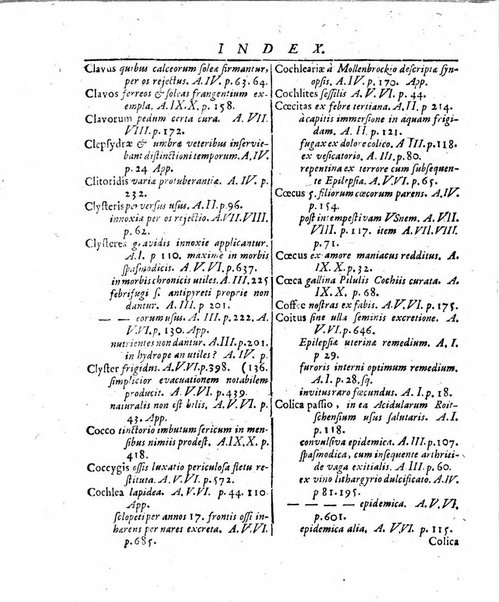 INDEX.
Clavus quibus calceorum soleæ firmantur,
per os rejectus. A. IV. p. 63. 64.
Clavos ferreos & soleas frangentium ex-
empla. A. IX. X. p. 158.
Clavorum pedum certa cura. A. VII
VIII. p. 172.
Clepsydræ & umbræ veteribus inservie-
bant distinctioni temporum. A. IV.
p. 24 App.
Clitoridis varia protuberantia. A. IV.
p. 232.
Clysteris perversus usus. A. II. p. 96.
innoxia per os rejectio. A. VII. VIII.
p. 62.
Clysteres gravidis innoxie applicantur.
A. I p. 110. maxime in morbis
spasmodicis. A. V. VI. p. 637.
in morbis chronicis utiles. A. III. 225
febrifugi s. antipyreti proprie non
dantur. A. III. p. 201.
— — eorum usus. A. III. p. 222. A.
V. VI. p, 130. App.
nutrientes non dantur. A. III. p. 200.
in hydrope an utiles? A. IV. p.
Clyster frigidus. A. V. VI. p. 398. (136.
simplicior evacuationem notabilem
producit. A. V. VI. p. 439.
naturalis non est bilis. A. V. VI. p.
43. App.
Cocco tinctorio imbutum sericum in men-
sibus nimiis prodest. A. IX. X. p.
418.
Coccygis ossis luxatio periculosa fletu re-
stituta. A. V. VI. p. 572.
Cochlea lapidea. A. V. VI. p. 44. 110
App.
sclopeti per annos 17. frontis ossi in-
hærens per nares excreta. A. V. VI.
p. 685.
Cochleariæ à Mollenbrockio descriptæ syn-
opsis. A. IV. p. 170. App.
Cochlites sessilis A. V. VI. p. 44.
Cœcitas ex febre tertiana. A. II p 214.
à capitis immersione in aquam frigi-
dam. A. II. p. 121.
fugax ex dolore colico. A. III p. 118.
ex vesicatorio. A. III. p. 80.
repentina ex terrore cum subsequen-
te Epilepsia. A. V. VI. p. 65.
Cœcus 5. filiorum cœcorum parens. A. IV.
p. 154.
post intempestivam VSnem. A. VII.
VIII. p. 117. item A. VII. VIII.
p. 71.
Cœcus ex amore maniacus redditus. A.
IX. X. p. 32.
Cœca gallina Pilulis Cochiis curata. A.
IX. X. p. 68.
Coffee nostras ex fabis. A. V. VI. p. 175.
Coitus sine ulla seminis excretione. A.
V. VI. p. 646.
Epilepsiæ uterinæ remedium. A. I.
p 29.
furoris interni optimum remedium.
A. I. p. 28. sq.
invitus raro fæcundus. A. I. p. 18.
Colica passio, in ea Acidularum Roit-
schensium usus salutaris. A. I.
p. 118.
convulsiva epidemica. A. III. p. 107.
spasmodica, cum insequente arthriei-
de vaga exitialis. A. III p. 60.
ex vino lithargyrio dulcificato. A. IV.
p 81. 195.
— — — — epidemica. A. V. VI.
p. 601.
epidemica alia. A. V. VI. p. 115.
Colica